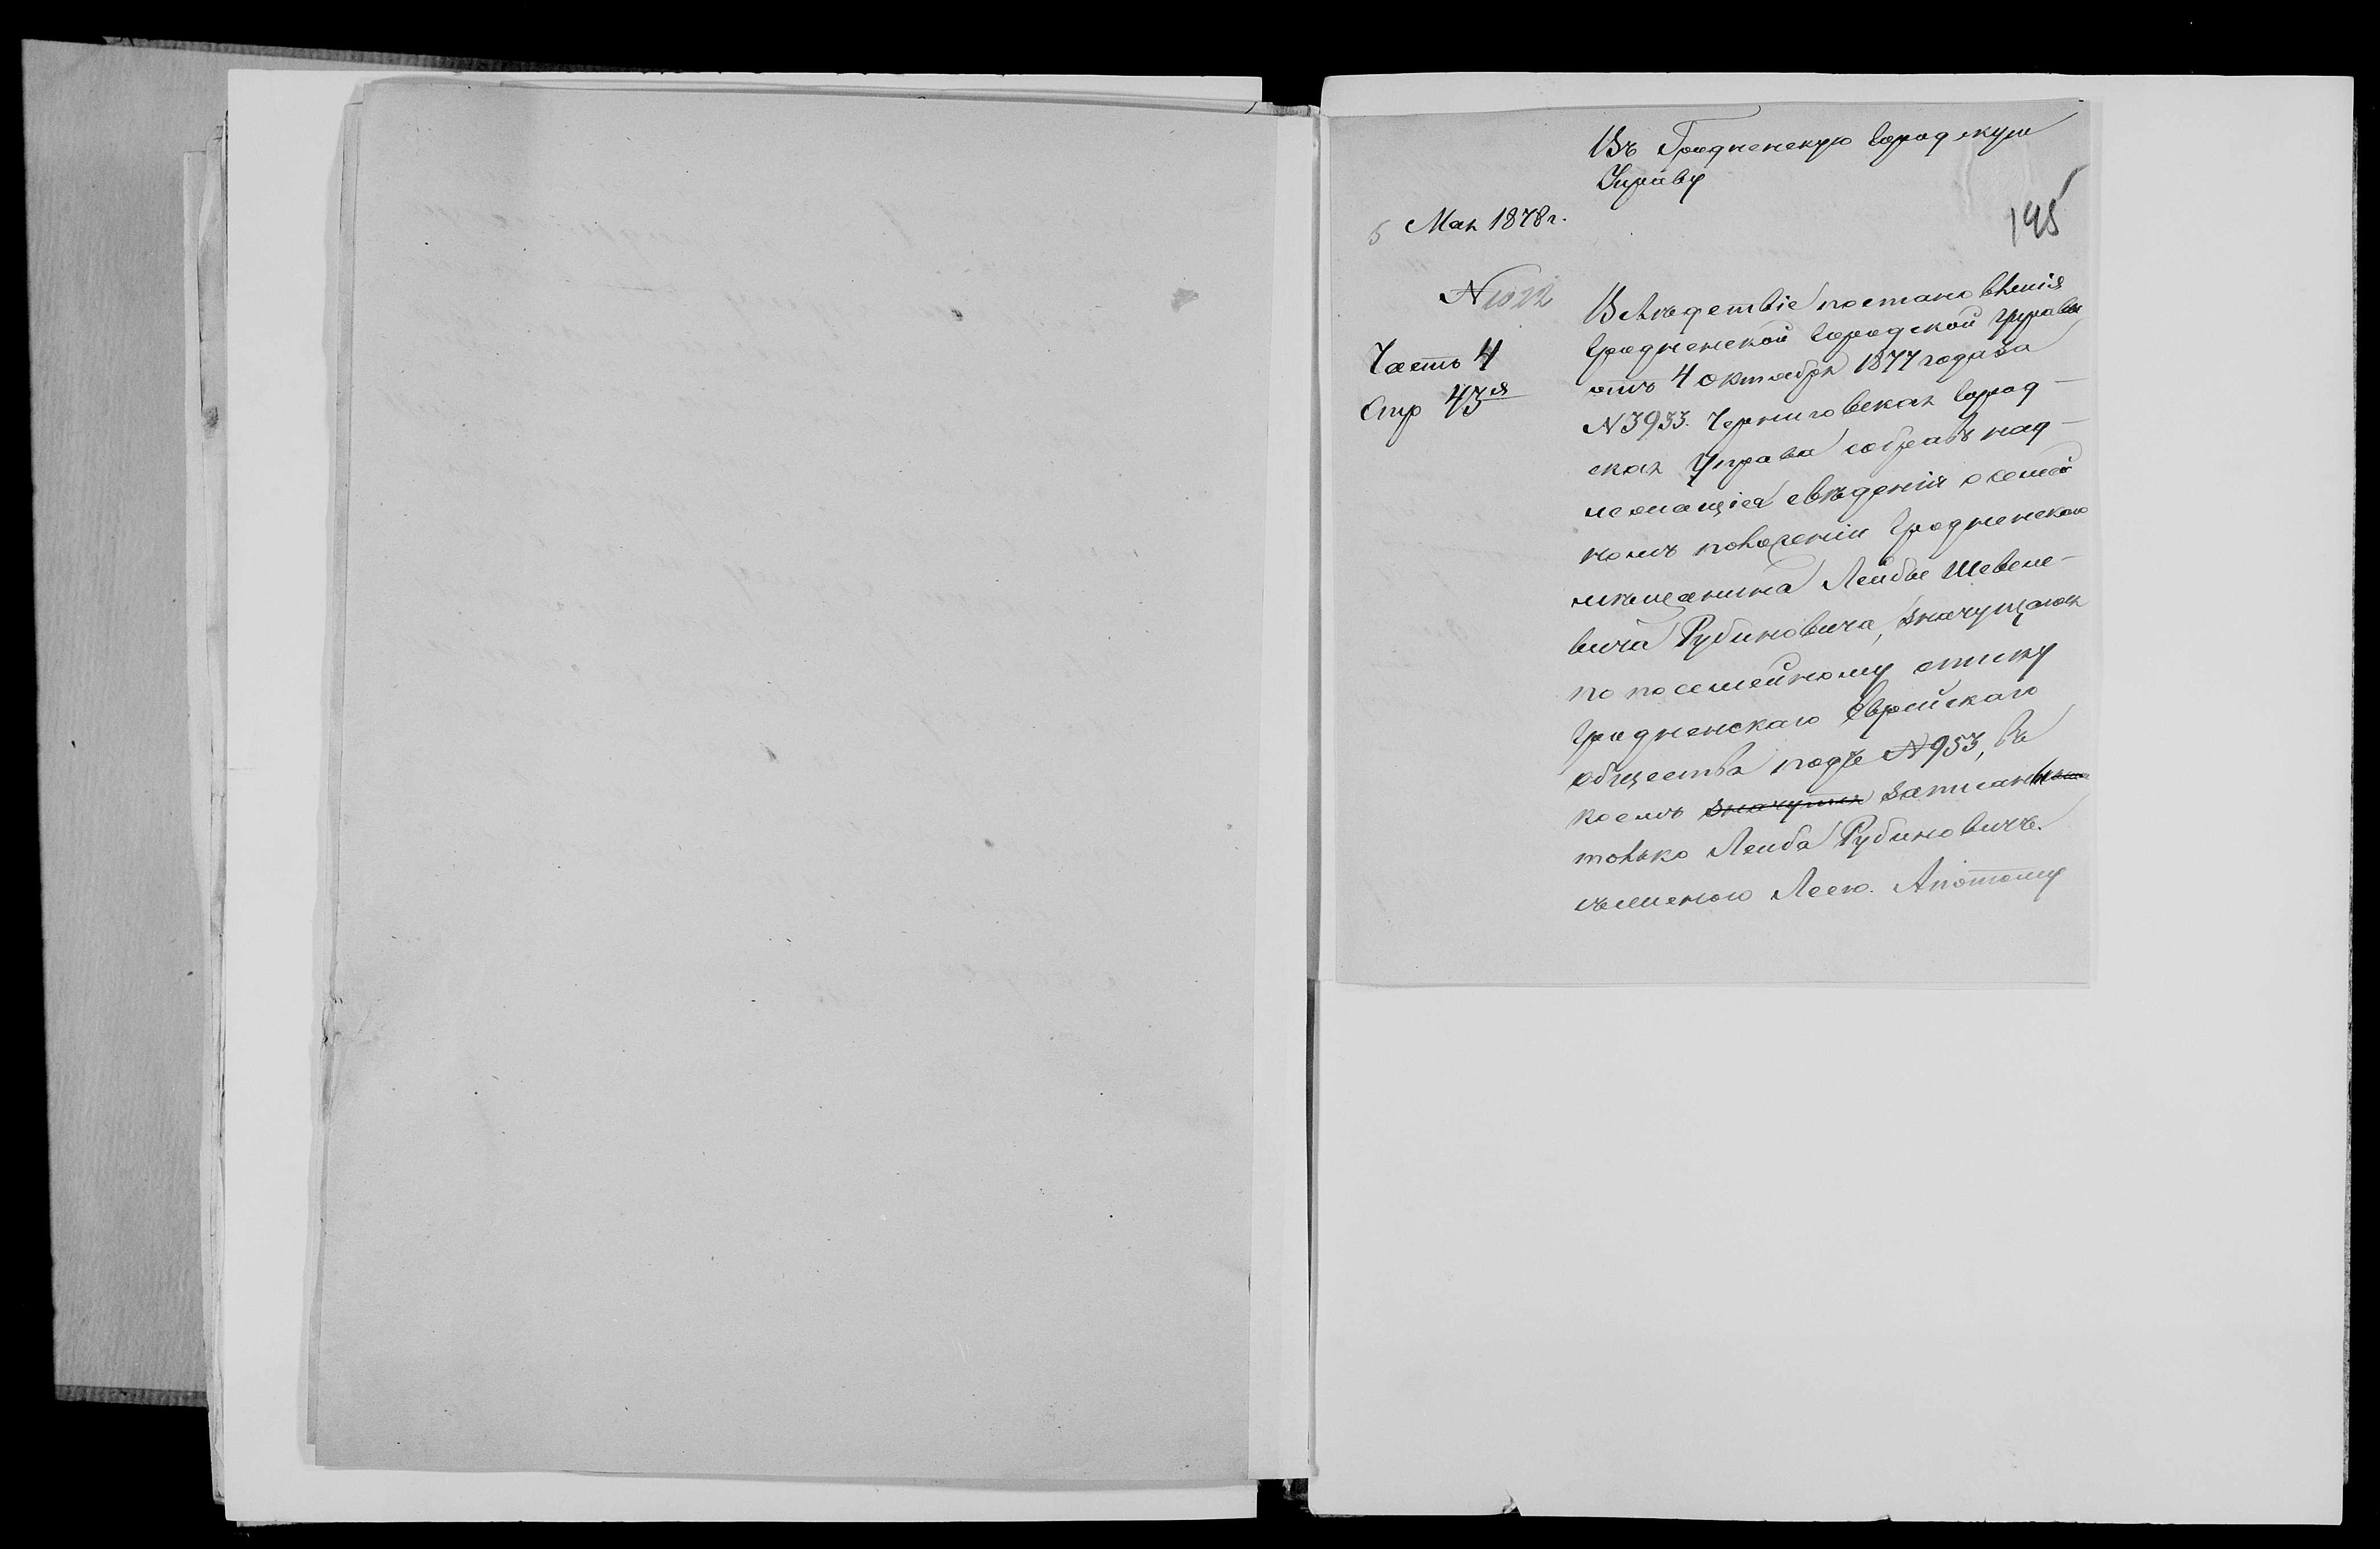 Въ Гродненскую Городскую
Управу
195
5 Мая 1878 г.
№ 1022
Часть 4
Стр 43я
Вслѣдствіе постановленія
Гродненской Городской Управы
отъ 4 октября 1877 года за
№ 3933. Черниговская Город-
ская Управа собравъ над-
лежащіея свѣденія о семей
номъ положеніи Гродненскаго
мѣщанина Лейбы Шевеле-
вича Рубиновича, значущагося
по посемейному списку
Гродненскаго Еврейскаго
общества подъ № 953, въ
коемъ значутся записанъ
только Леиба Рубиновичъ
съ женою Леею. А потому